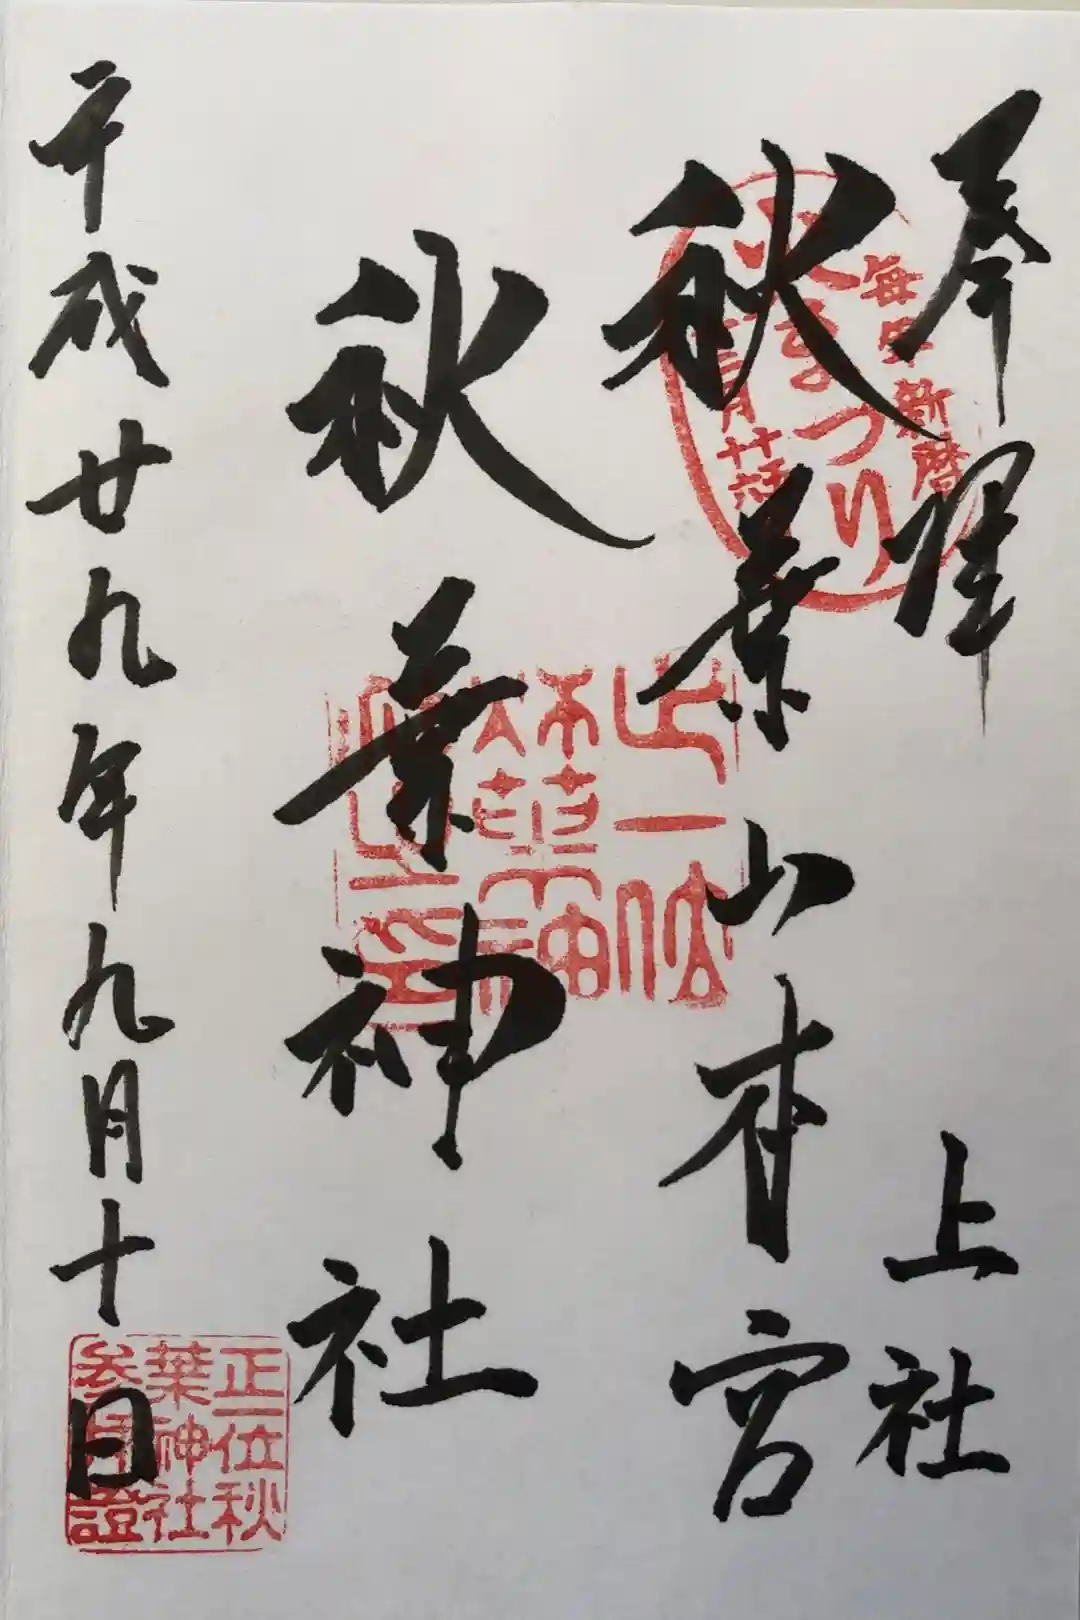 奉拝
上社
秋葉山本宮
秋葉神社
平成廿九年九月十日
毎年新暦
火まつり
正一位
秋葉神
正一位秋
葉神社
参拝證